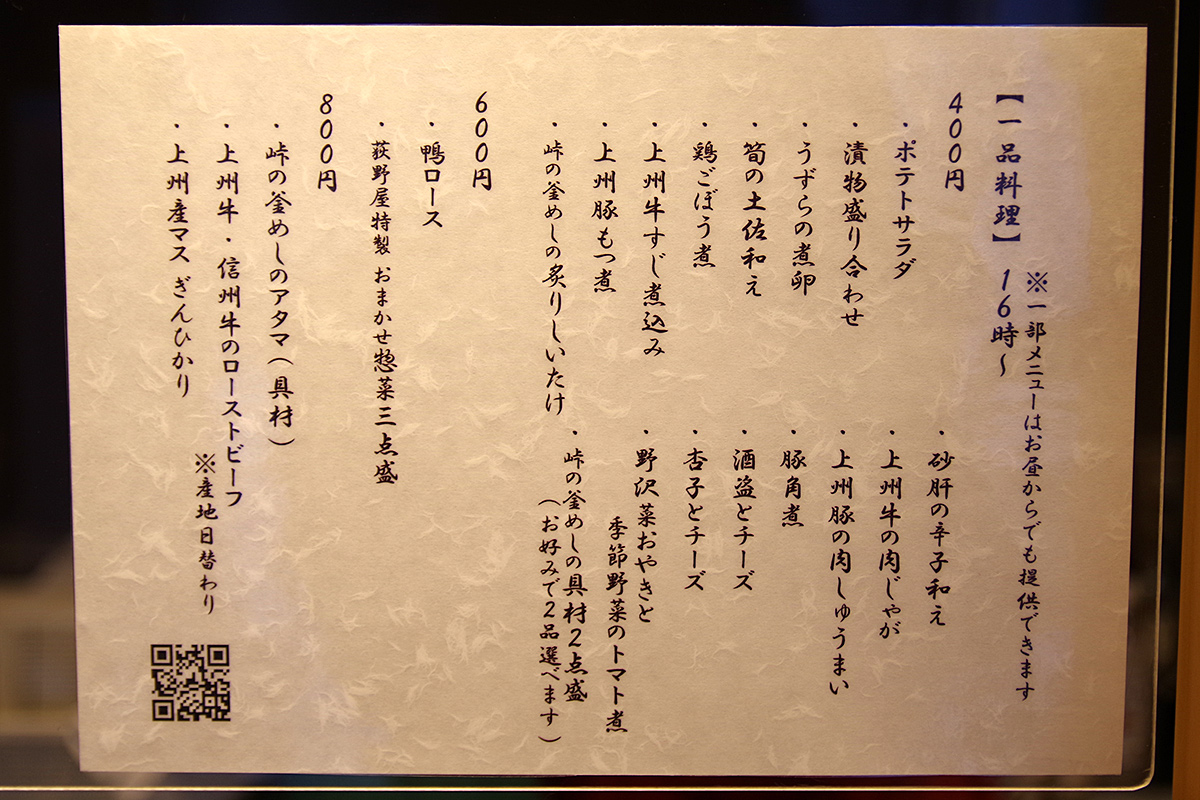 【一品料理】 16時～
※一部メニューはお昼からでも提供できます
400円
・ポテトサラダ
・漬物盛り合わせ
・うずらの煮卵
・筍の土佐和え
・鶏ごぼう煮
・上州牛すじ煮込み
・上州豚もつ煮
・峠の釜めしの炙りしいたけ
・砂肝の辛子和え
・上州牛の肉じゃが
・上州豚の肉しゅうまい
・豚角煮
・酒盗とチーズ
・杏子とチーズ
・野沢菜おやきと
季節野菜のトマト煮
・峠の釜めしの具材2点盛
（お好みで2品選べます）
600円
・鴨ロース
・荻野屋特製 おまかせ惣菜三点盛
800円
・峠の釜めしのアタマ（具材）
・上州牛・信州牛のローストビーフ
※産地日替わり
・上州産マス ぎんひかり